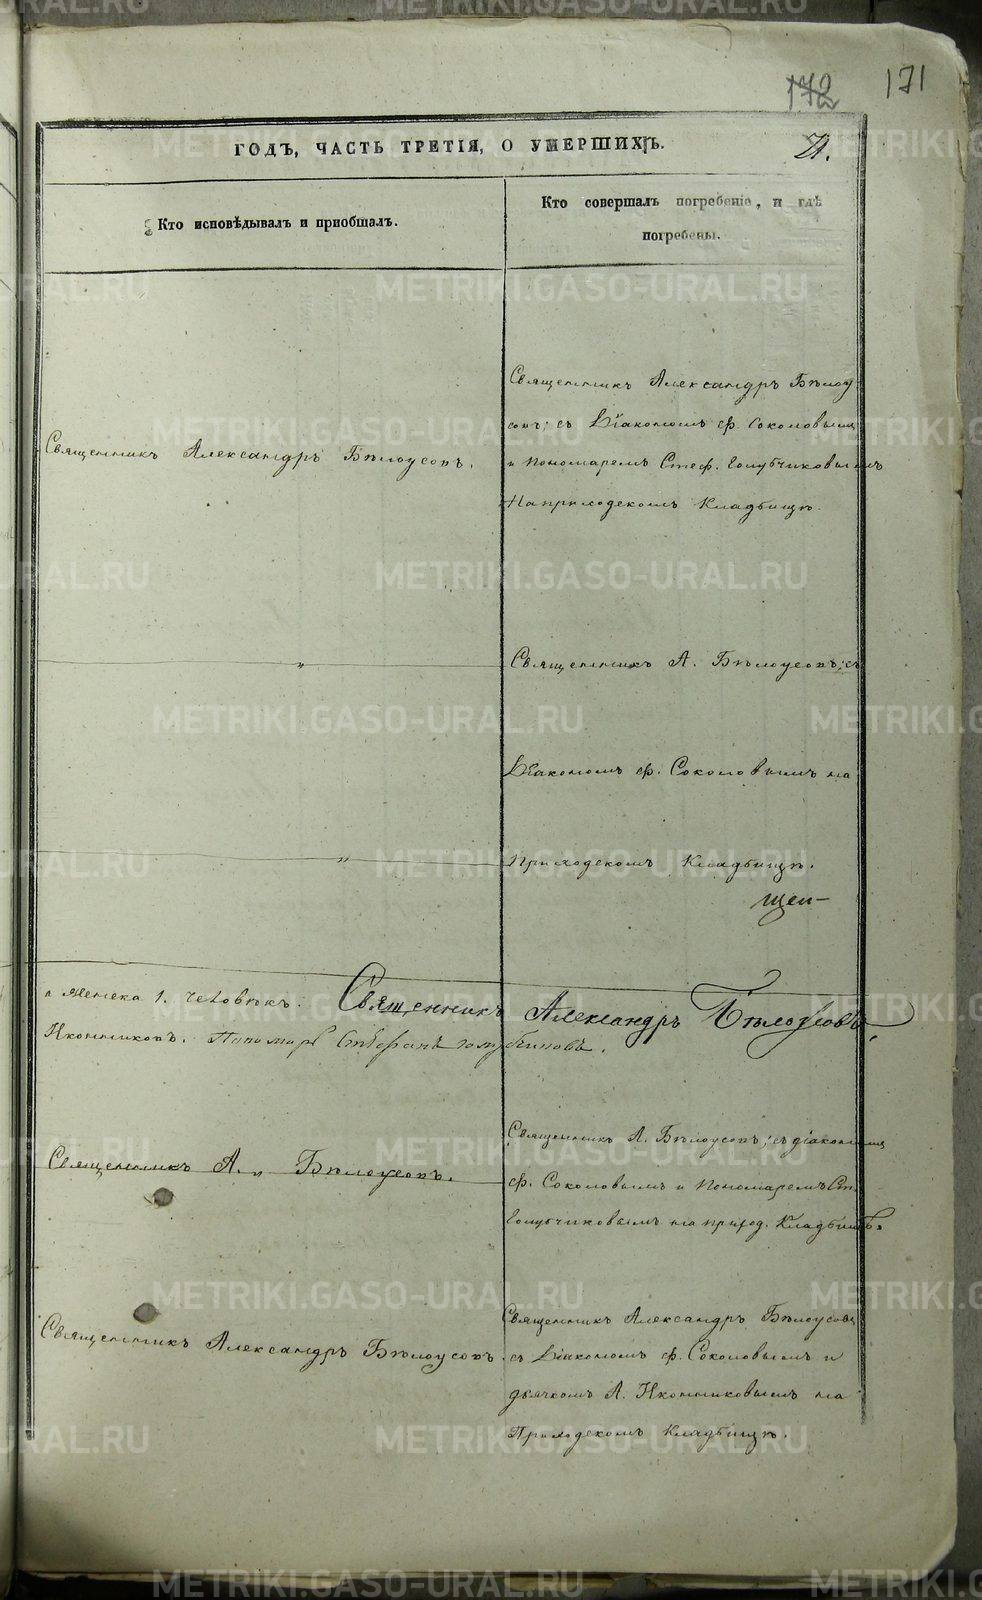 172 171
ГОДЪ, ЧАСТЬ ТРЕТІЯ, О УМЕРШИХЪ.
71.
Кто исповѣдывалъ и пріобщалъ.
Кто совершалъ погребеніе, и гдѣ
погребены.
Священникъ Александръ Бѣлоусовъ.
Священникъ Александръ Бѣлоу-
совъ; съ Діакономъ Ф. Соколовымъ
и Пономаремъ Стеф. Голубчиковымъ
На приходскомъ Кладбищѣ.
"
Священникъ А. Бѣлоусовъ; съ
Діакономъ Ф. Соколовымъ на
"
Приходскомъ Кладбищѣ.
щеи-
и женска 1. человѣкъ. Священникъ Александръ Бѣлоусовъ,
Иконниковъ. Пономарь Стефанъ Голубчиковъ.
Священникъ А. Бѣлоусовъ.
"
Священникъ А. Бѣлоусовъ; съ діакономъ
Ф. Соколовымъ и Пономаремъ Ст.
Голубчиковымъ на приход. Кладбищѣ.
Священникъ Александръ Бѣлоусовъ.
Священникъ Александръ Бѣлоусовъ
съ Діакономъ Ф. Соколовымъ и
дьячкомъ А. Иконниковымъ на
Приходскомъ Кладбищѣ.
METRIKI.GASO-URAL.RU